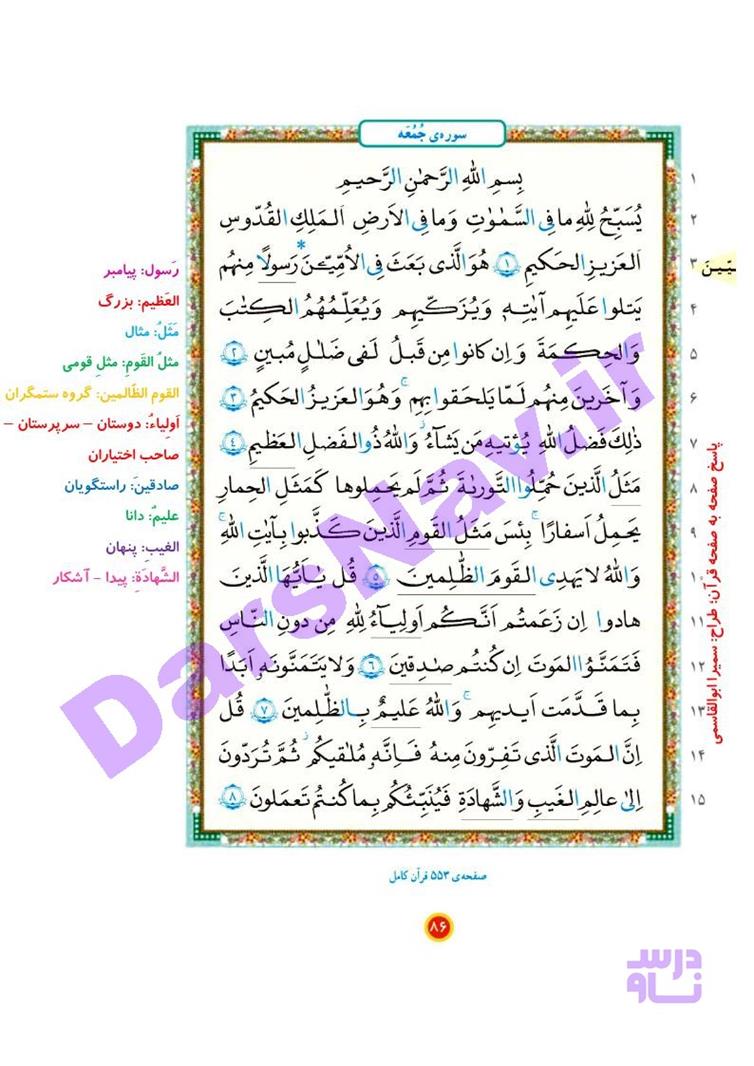 سوره‌ی جُمُعَه
۱ بِسمِ اللهِ الرَّحمٰنِ الرَّحیمِ
۲ یُسَبِّحُ لِلّٰهِ ما فِی السَّمٰوٰتِ وَ ما فِی الاَرضِ اَلمَلِکِ القُدّوسِ
۳ اَلعَزیزِ الحَکیمِ ﴿۱﴾ هُوَ الَّذی بَعَثَ فِی الاُمِّیّٖنَ* رَسولًا مِنهُم
یّینَ
۴ یَتلوا عَلَیهِم آیاتِهٖ وَ یُزَکّیهِم وَ یُعَلِّمُهُمُ الکِتٰبَ
۵ وَ الحِکمَةَ وَ اِن کانوا مِن قَبلُ لَفی ضَلٰلٍ مُبینٍ ﴿۲﴾
۶ وَ آخَرینَ مِنهُم لَمّا یَلحَقوا بِهِم ۚ وَ هُوَ العَزیزُ الحَکیمُ ﴿۳﴾
۷ ذٰلِکَ فَضلُ اللهِ یُؤتیهِ مَن یَشآءُ ۚ وَ اللهُ ذُو الفَضلِ العَظیمِ ﴿۴﴾
۸ مَثَلُ الَّذینَ حُمِّلُوا التَّورٰىةَ ثُمَّ لَم یَحمِلوها کَمَثَلِ الحِمارِ
۹ یَحمِلُ اَسفارًا ۚ بِئسَ مَثَلُ القَومِ الَّذینَ کَذَّبوا بِآیٰتِ اللهِ ۚ
۱۰ وَ اللهُ لا یَهدِی القَومَ الظّٰلِمینَ ﴿۵﴾ قُل یٰٓاَیُّهَا الَّذینَ
۱۱ هادوا اِن زَعَمتُم اَنَّکُم اَولِیآءُ لِلّٰهِ مِن دونِ النّاسِ
۱۲ فَتَمَنَّوُا المَوتَ اِن کُنتُم صٰدِقینَ ﴿۶﴾ وَ لا یَتَمَنَّونَهٗ اَبَدًا
۱۳ بِما قَدَّمَت اَیدیهِم ۚ وَ اللهُ عَلیمٌ بِالظّٰلِمینَ ﴿۷﴾ قُل
۱۴ اِنَّ المَوتَ الَّذی تَفِرّونَ مِنهُ فَاِنَّهٗ مُلٰقیکُم ۖ ثُمَّ تُرَدّونَ
۱۵ اِلیٰ عالِمِ الغَیبِ وَ الشَّهادَةِ فَیُنَبِّئُکُم بِما کُنتُم تَعمَلونَ ﴿۸﴾
رَسول: پیامبر
العَظیم: بزرگ
مَثَلُ: مثال
مثلُ القَومِ: مثلِ قومی
القوم الظّالمین: گروه ستمگران
اَولِیاءُ: دوستان – سرپرستان –
صاحب اختیاران
صادقینَ: راستگویان
علیمٌ: دانا
الغَیبِ: پنهان
الشَّهادَةِ: پیدا - آشکار
پاسخ صفحه به صفحه قرآن: طراح: سمیرا ابوالقاسمی
صفحه‌ی ۵۵۳ قرآن کامل
۸۶
DarsNav.ir
درس
ناو